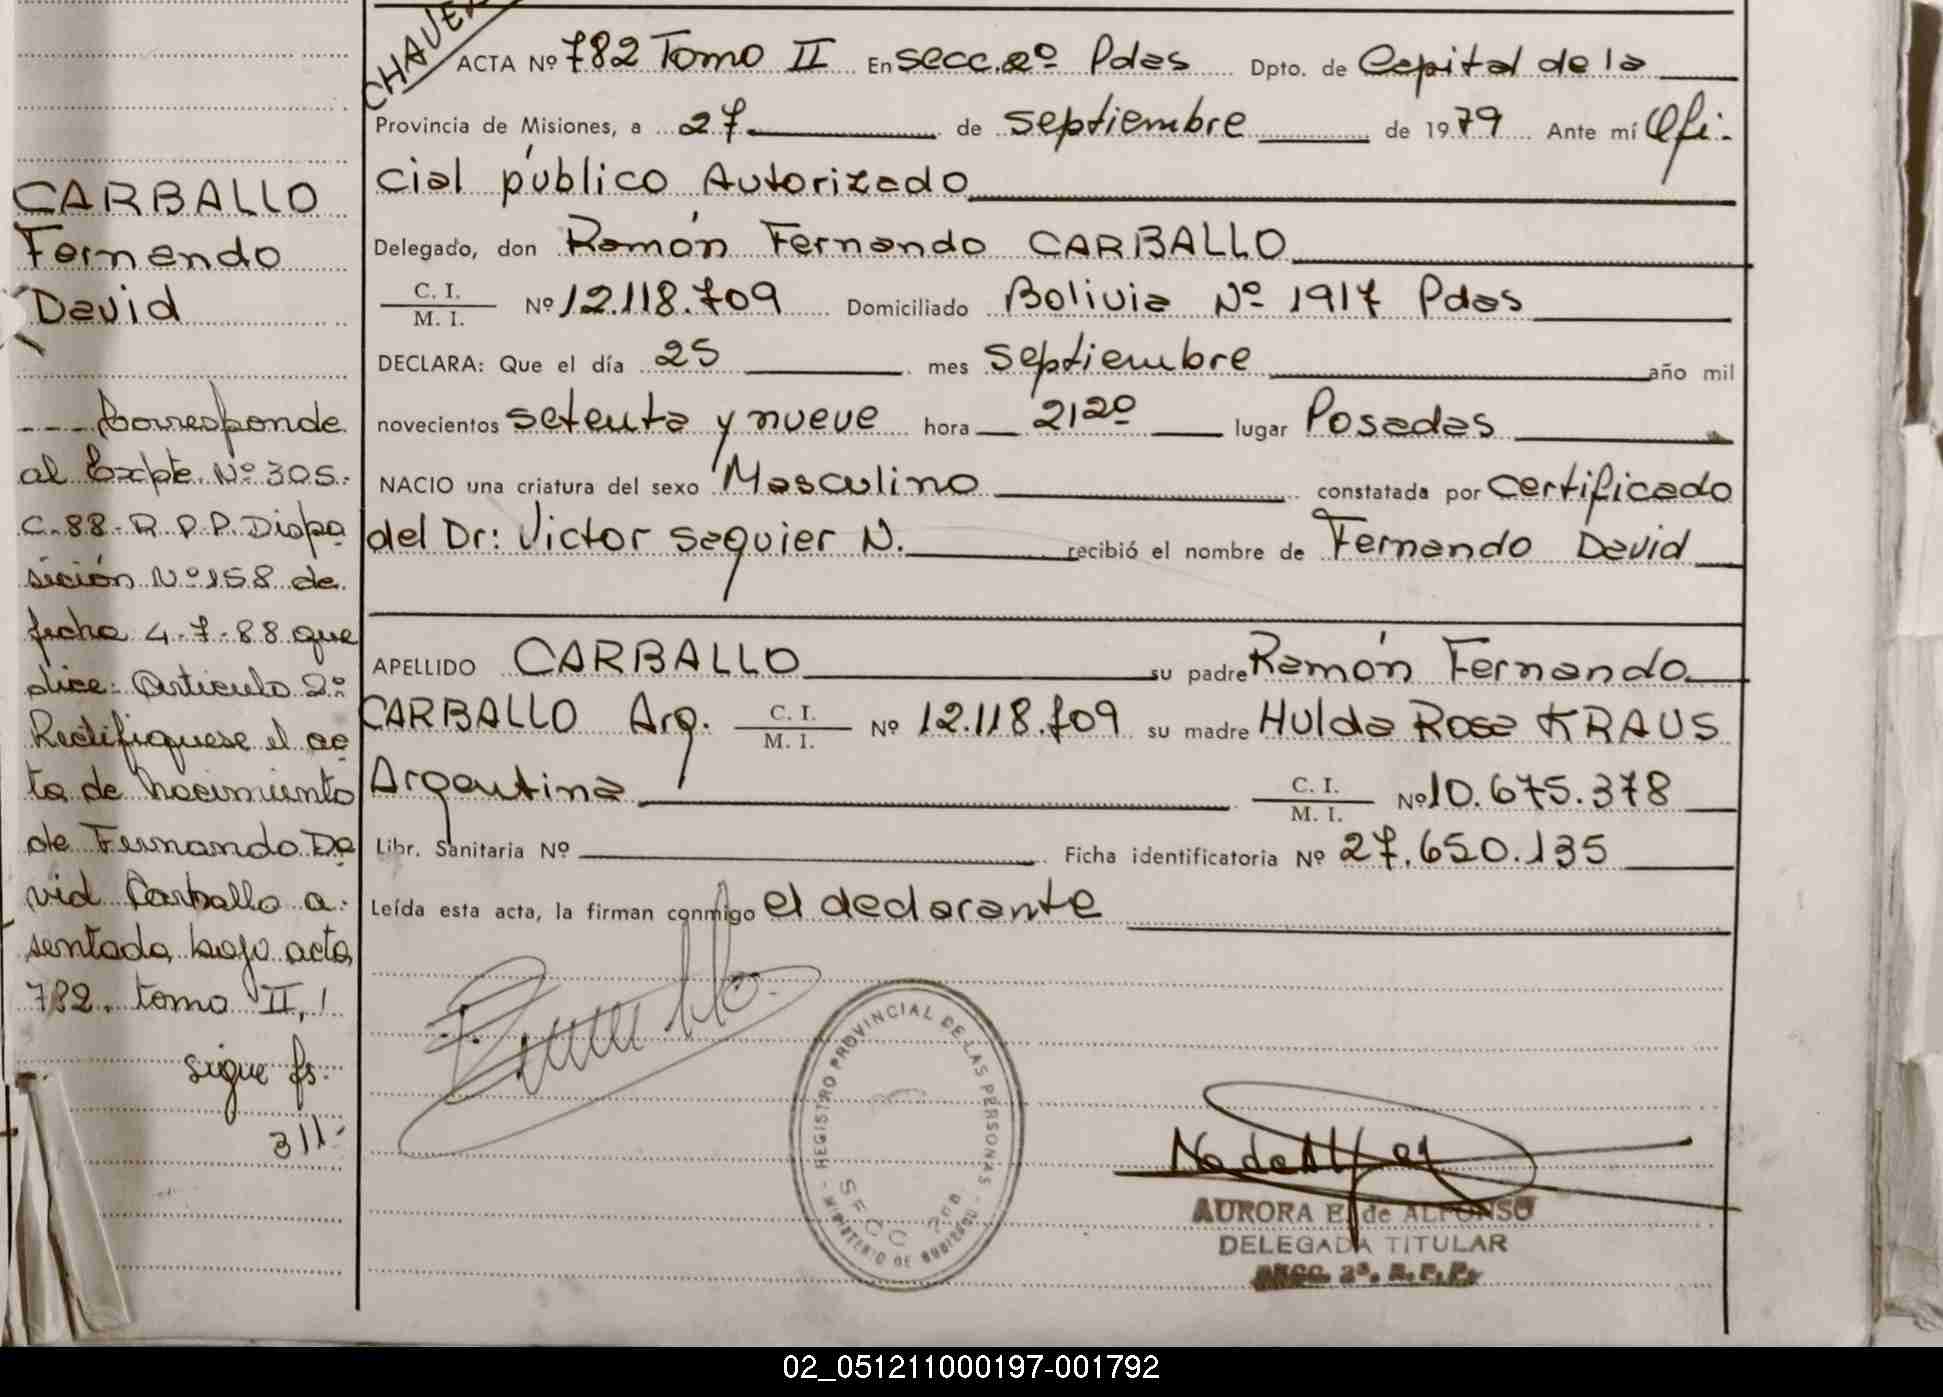 CHAVE
ACTA Nº 782 Tomo II En secc. 2º Pdas Dpto. de Capital de la
Provincia de Misiones, a 27 de septiembre de 1979 Ante mí Ofi-
cial público Autorizado
Delegado, don Ramón Fernando CARBALLO
C. I.
M. I. Nº 12.118.709 Domiciliado Bolivia Nº 1917 Pdas
DECLARA: Que el día 25 mes septiembre año mil
novecientos setenta y nueve hora 21 20 lugar Posadas
NACIO una criatura del sexo Masculino constatada por certificado
del Dr: Victor Seguier N. recibió el nombre de Fernando David
APELLIDO CARBALLO su padre Ramón Fernando
CARBALLO Arg. C. I. M. I. Nº 12.118.709 su madre Hulda Rosa KRAUS
Argentina C. I. M. I. Nº 10.675.378
Libr. Sanitaria Nº Ficha identificatoria Nº 27.650.135
Leída esta acta, la firman conmigo el declarante
CARBALLO
Fernando
David
Corresponde
al Expte. Nº 305-
C-88-R.P.P. Dispo
sición Nº 158 de
fecha 4-7-88 que
dice: Articulo 2º
Rectifiquese el ac
ta de nacimiento
de Fernando Da
vid Carballo a-
sentada bajo acta
782, tomo II,
sigue fs.
311-
REGISTRO PROVINCIAL DE LAS PERSONAS - MINISTERIO DE GOBIERNO -
SECC
AURORA E. de ALFONSO
DELEGADA TITULAR
SECC. 2ª. R. P. P.
02_051211000197-001792